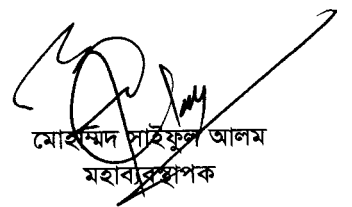 মোহাম্মিদ সাইফুল আলম
মহাব্যবস্থাপক